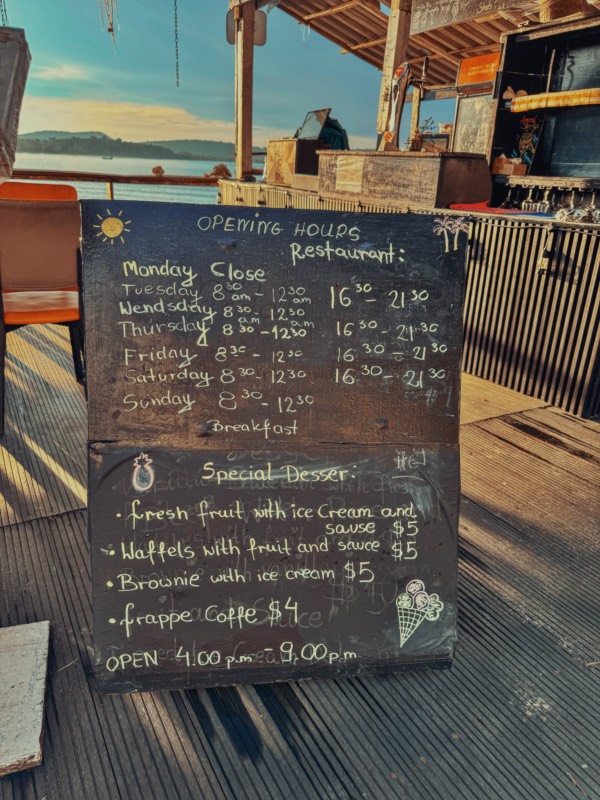 OPENING HOURS
Restaurant:
Monday Close
Tuesday 8 30 am - 12 30 am 16 30 - 21 30
Wendsday 8 30 am - 12 30 am
Thursday 8 30 - 12 30 16 30 - 21 30
Friday 8 30 - 12 30 16 30 - 21 30
Saturday 8 30 - 12 30 16 30 - 21 30
Sunday 8 30 - 12 30
Breakfast
Special Desser:
• fresh fruit with ice cream and
sause $5
• Waffels with fruit and sauce $5
• Brownie with ice cream $5
• frappe Coffe $4
OPEN 4.00 p.m. - 9.00 p.m.